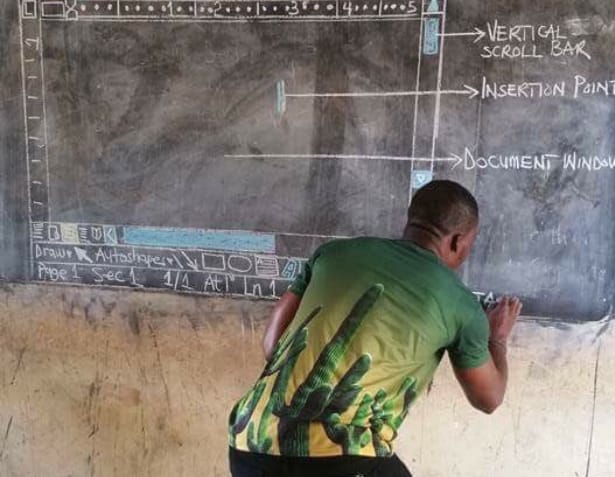 1 2 3 4 5
VERTICAL
SCROLL BAR
INSERTION POINT
DOCUMENT WINDOW
Draw Autoshapes A
Page 1 Sec 1 1/1 At" Ln 1
TA